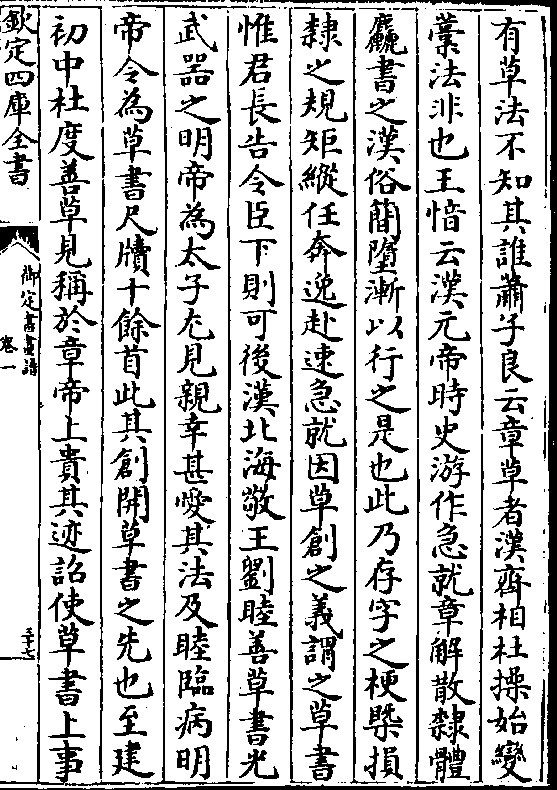 有草法不知其誰蕭子良云章草者漢齊相杜操始變
藁法非也王愔云漢元帝時史游作急就章解散隸體
麤書之漢俗簡墮漸以行之是也此乃存字之梗槩損
隸之規矩縱任奔逸赴速急就因草創之義謂之草書
惟君長告令臣下則可後漢北海敬王劉睦善草書光
武器之明帝為太子尤見親幸甚愛其法及睦臨病明
帝令為草書尺牘十餘首此其創開草書之先也至建
初中杜度善草見稱於章帝上貴其迹詔使草書上事
欽定四庫全書
御定書畫譜
卷一
三十七